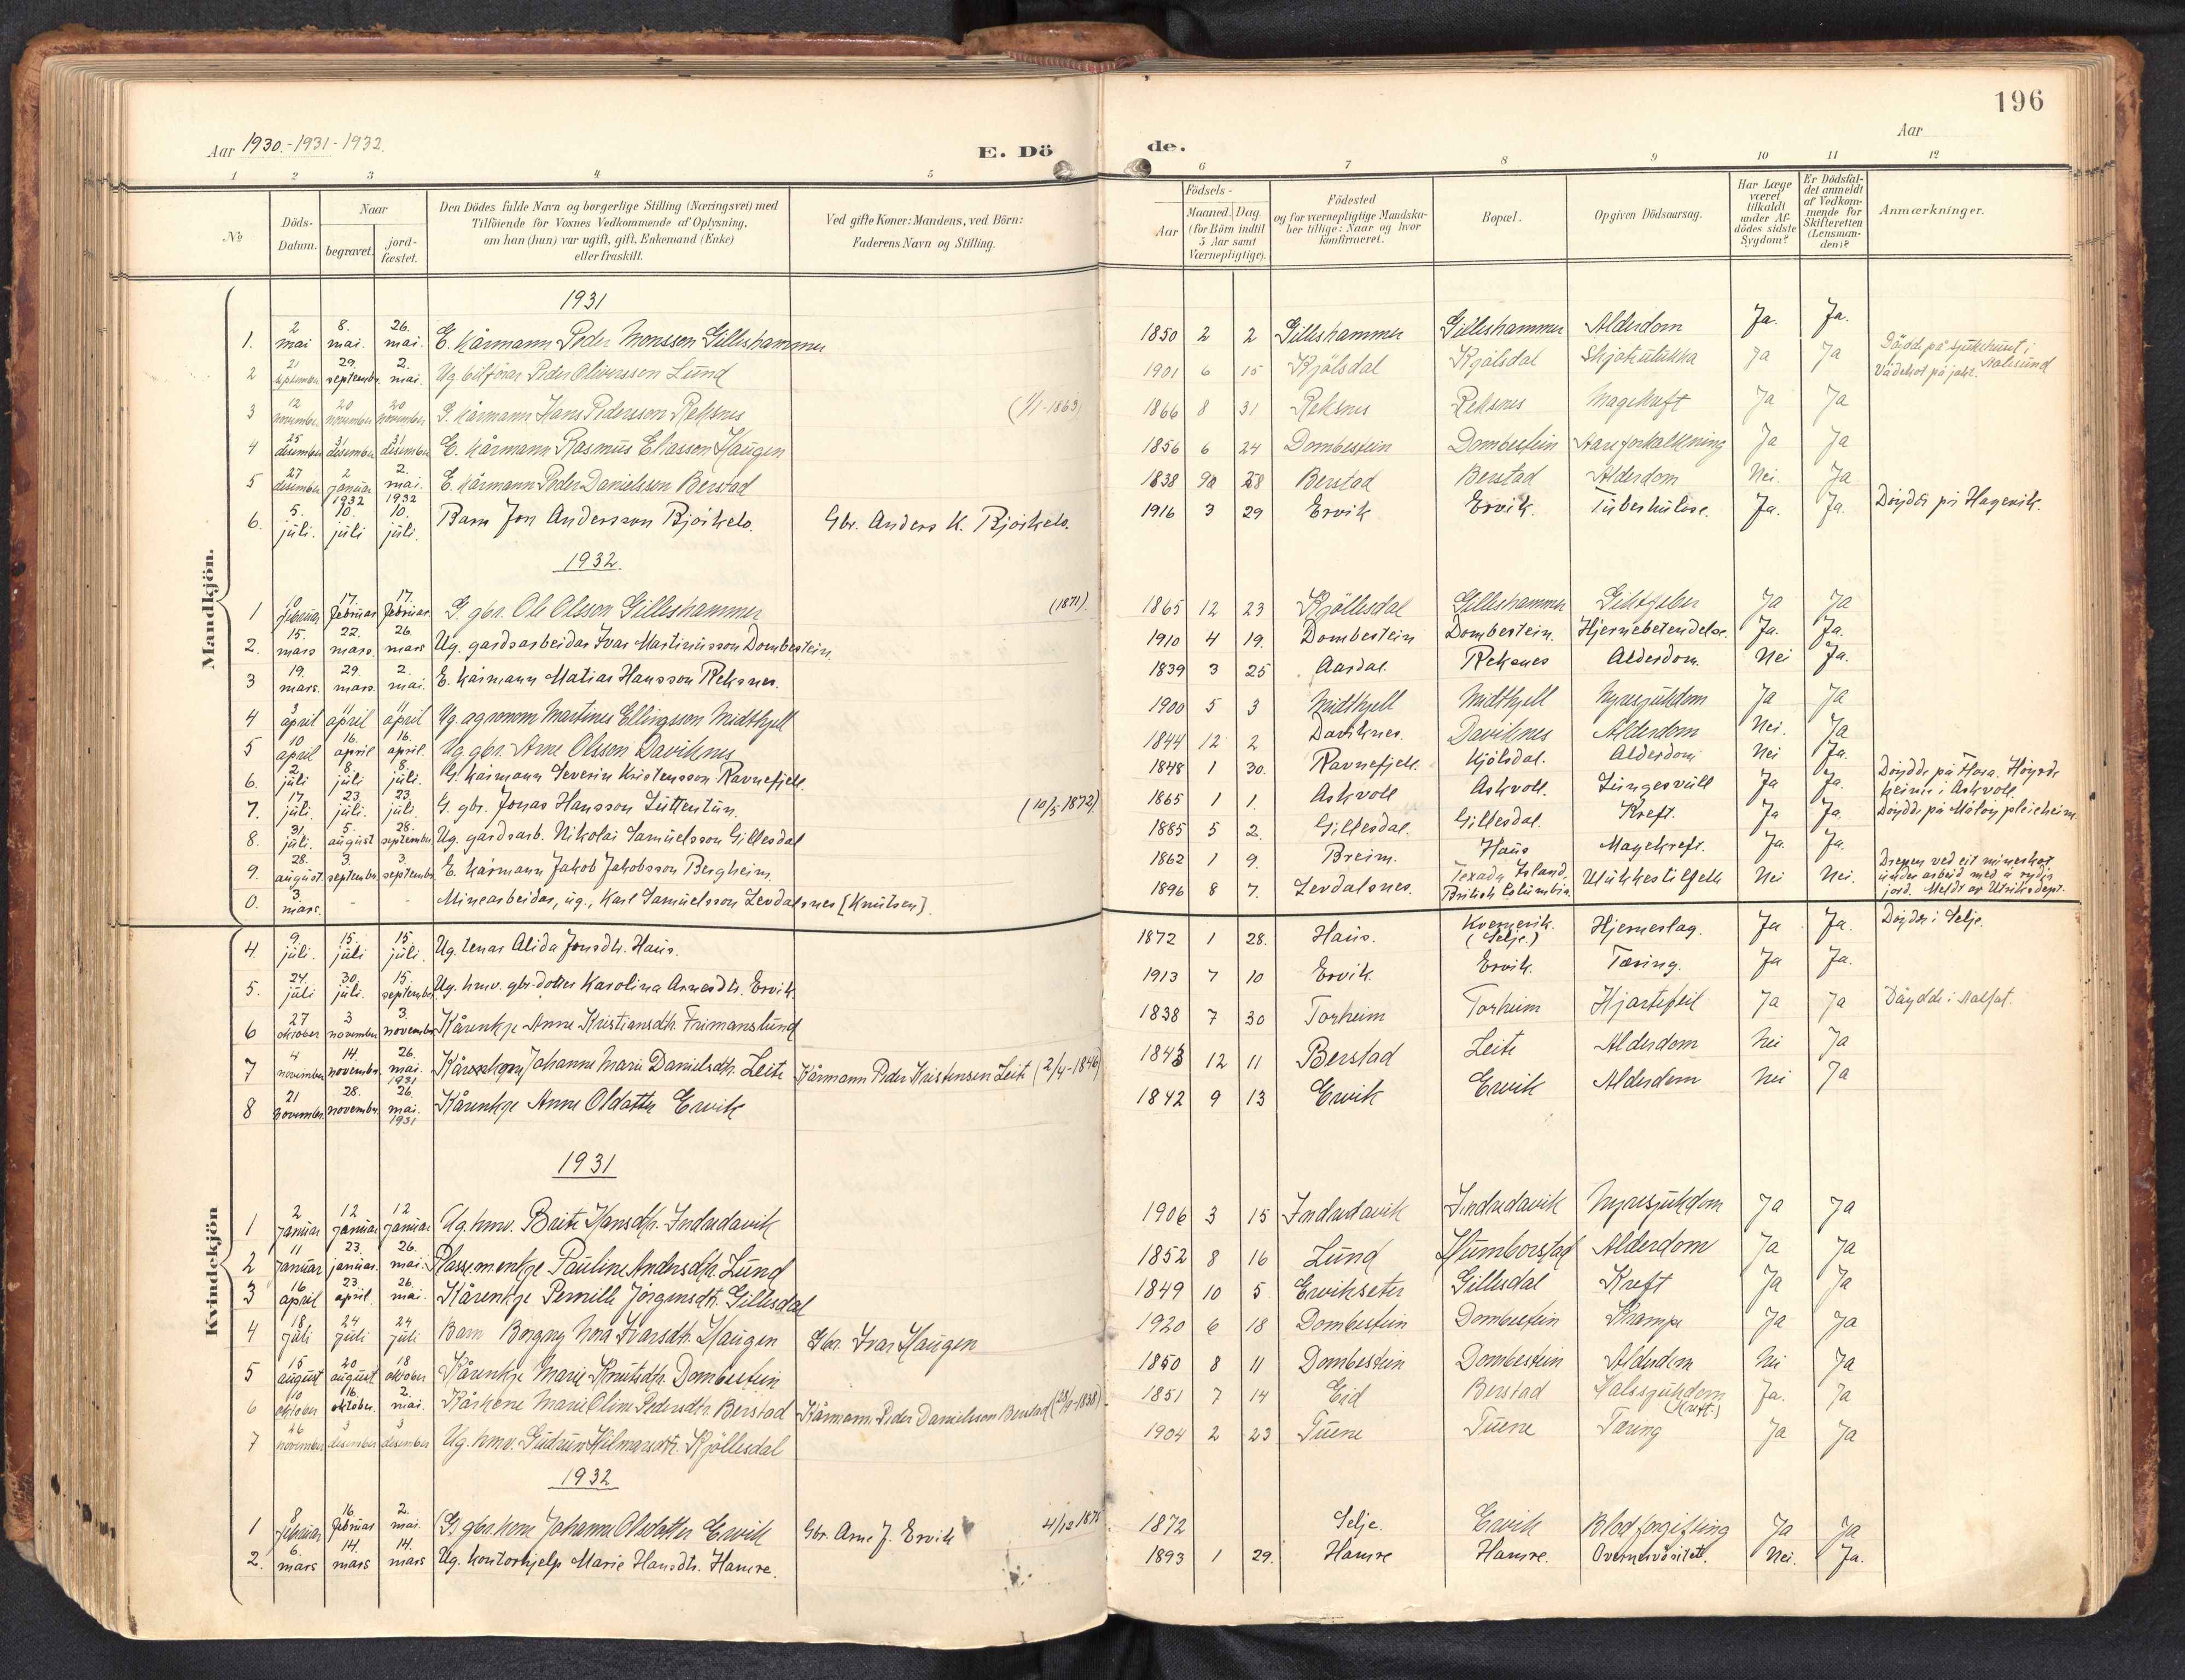 196
Aar 1930.-1931-1932.
E. Döde.
Aar
1 2 3 4 5 6 7 8 9 10 11 12
No
Döds-Datum.
Naar
begravet.
jordfæstet.
Den Dödes fulde Navn og borgerlige Stilling (Næringsvei) med
Tilföiende for Voxnes Vedkommende af Oplysning,
om han (hun) var ugift, gift, Enkemand (Enke)
eller fraskilt.
Ved gifte Koner: Mandens, ved Börn:
Faderens Navn og Stilling.
Födsels-
Aar
Maaned. Dag.
(for Börn indtil
5 Aar samt
Værnepligtige).
Födested
og for værnepligtige Mandska-
ber tillige: Naar og hvor
konfirmeret.
Bopæl.
Opgiven Dödsaarsag.
Har Læge
været
tilkaldt
under Af-
dödes sidste
Sygdom?
Er Dödsfal-
det anmeldt
af Vedkom-
mende for
Skifteretten
(Lensman-
den)?
Anmærkninger.
Mandkjön.
1931
1. 2 mai 8. mai. 26. mai. E. kårmann Peder Monsson Gilleshammer 1850 2 2 Gilleshammer Gilleshammer Alderdom Ja. Ja.
2 21 september 29. septembr. 2. mai. Ug bilförar Peder Oliversson Lund 1901 6 15 Kjölsdal Kjölsdal Skjotulukka Ja Ja Döydde på sjukehuset i Aalesund Vådeskot på jakt.
3 12 november 20 november 20 november G. kårmann Hans Pedersson Reksnes (1/1-1863) 1866 8 31 Reksnes Reksnes Magekreft Ja Ja
4 25 desember 31 desember 31 desember E. kårmann Rasmus Eliasson Haugen 1856 6 24 Dombestein Dombestein Aareforkalkning Ja Ja
5 27 desember 2 januar 1932 2. mai. 1932 E. kårmann Peder Danielssen Berstad 1838 9 28 Berstad Berstad Alderdom Nei. Ja
6. 5. juli. 10. juli 10. juli. Barn Jon Andersson Bjørkelo. Gbr. Anders K. Bjørkelo. 1916 3 29 Ervik Ervik. Tuberkulose. Ja. Ja. Døydde på Hagevik.
1932.
1 10 februar 17. februar 17. februar G. gbr. Ole Olsson Gilleshammer (1871) 1865 12 23 Kjöllesdal Gilleshammer Giktfeber Ja Ja
2. 15. mars 22. mars. 26. mars Ug. gardsarbeidar Ivar Martinusson Dombestein. 1910 4 19. Dombestein Dombestein. Hjernebetendelse. Ja. Ja.
3 19. mars. 29. mars. 2. mai. E. kårmann Matias Hansson Reksnes. 1839 3 25 Aardal. Reksnes Alderdom. Nei Ja.
4 3 april 11 april 11 april Ug. agronom Martines Ellingsson Midthjell 1900 5 3 Midthjell Midthjell Nyresjukdom Ja Ja
5 10 april 16. april 16. april. Ug. gbr. Arne Olsson Daviknes 1844 12 2 Daviknes. Daviknes Alderdom Nei. Ja
6. 2. juli 8. juli 8. juli. G. kårmann Severin Kristensson Ravnefjell. 1848 1 30. Ravnefjell. Kjølsdal. Alderdom Nei Ja.
7. 17. juli. 23. juli. 23. juli. G. gbr. Jonas Hansson Luttentun. (10/5-1872) 1865 1 1. Askvoll Askvoll. Lungesvull Ja Ja. Døydde på Florø. Høyrde heime i Askvoll.
8. 31. juli. 5. august 28. september. Ug. gardsarb. Nikolai Samuelsson Gillesdal 1885 5 2. Gillesdal. Gillesdal. Kreft. Ja Ja. Døydde på Måløy pleieheim.
9. 28. august. 3. september 3. september E. kårmann Jakob Jakobsson Bergheim. 1862 1 9. Breim. Haus Magekreft. Ja. Ja.
0. 3. mars. - - Minearbeidar, ug., Karl Samuelsson Levdalsnes [Knutsen]. 1896 8 7. Levdalsnes. Texada Island, British Columbia. Ulukkestilfelle Nei Nei. Drepen ved eit mineskot under arbeid med å rydje jord. Meldt av Utriksdept.
Kvindekjön
4. 9 juli. 15. juli 15. juli. Ug. lenas Alida Jonsdtr. Haus. 1872 1 28. Haus. Kvernevik. (Selje.) Hjerneslag. Ja Ja. Døydde i Selje.
5. 24. juli 30. juli. 15. september. Ug. hmv. gbr-dotter Karolina Arnesdtr. Ervik. 1913 7 10 Ervik. Ervik. Tæring. Ja Ja.
6 27 oktober 3 november 3. november Kårenkje Anne Kristiansdtr. Frimanslund 1838 7 30 Torheim Torheim Hjartefeil Ja Ja Döydde i Aalfot.
7 4 november 14. novembr. 26. mai. 1931 Kårenkje Johanne Marie Danielsdtr. Leite Kårmann Peder Kristensen Leite (2/4-1846) 1843 12 11 Berstad Leite Alderdom Nei Ja
8 21 november. 28. november. 26. mai. 1931 Kårenkje Anne Oldotter Ervik 1842 9 13 Ervik Ervik Alderdom Nei Ja
1931
1 2 januar 12 januar 12 januar Ug. hmv. Beite Hansdtr. Indredavik 1906 3 15 Indredavik Indredavik Nyresjukdom Ja Ja
2 11 januar 23. januar. 26. mai. Plassemenkje Pauline Andersdtr. Lund 1852 8 16 Lund Humborstad Alderdom Ja Ja
3 16 april 23. april. 26. mai. Kårenkje Pernille Jörgensdtr. Gillesdal 1849 10 5 Ervikseter Gillesdal Kreft Ja Ja
4 18 juli 24 juli 24 juli Barn Borgny Nora Ivarsdtr. Haugen Gbr. Ivar Haugen 1920 6 18 Dombestein Dombestein Krampe Ja Ja
5 15 august 20 august. 18 oktober Kårenkje Marie Knutsdtr. Dombestein 1850 8 11 Dombestein Dombestein Alderdom Nei Ja
6 10 oktober 16. oktober. 2. mai. Kårkone Marie Oline Pedersdtr. Berstad Kårmann Peder Danielsson Berstad (28/9-1838) 1851 7 14 Eid Berstad Halssjukdom (kreft.) Ja. Ja
7 26 november 3 desember 3 desember Ug. hmv. Gudrun Hilmarsdtr. Kjöllesdal 1904 2 23 Tuene Tuene Tæring Ja Ja
1932
1 8 februar 16. februar 2. mai. G. gbr.kone Johanne Olsdotter Ervik Gbr. Arne J. Ervik 4/12 1875 1872 Selje. Ervik Blodforgifting Ja Ja
2. 6. mars 14. mars 14. mars Ug. kontorhjelp Marie Hansdtr. Hamre. 1893 1 29. Hamre Hamre. Overnervøsitet. Nei. Ja.